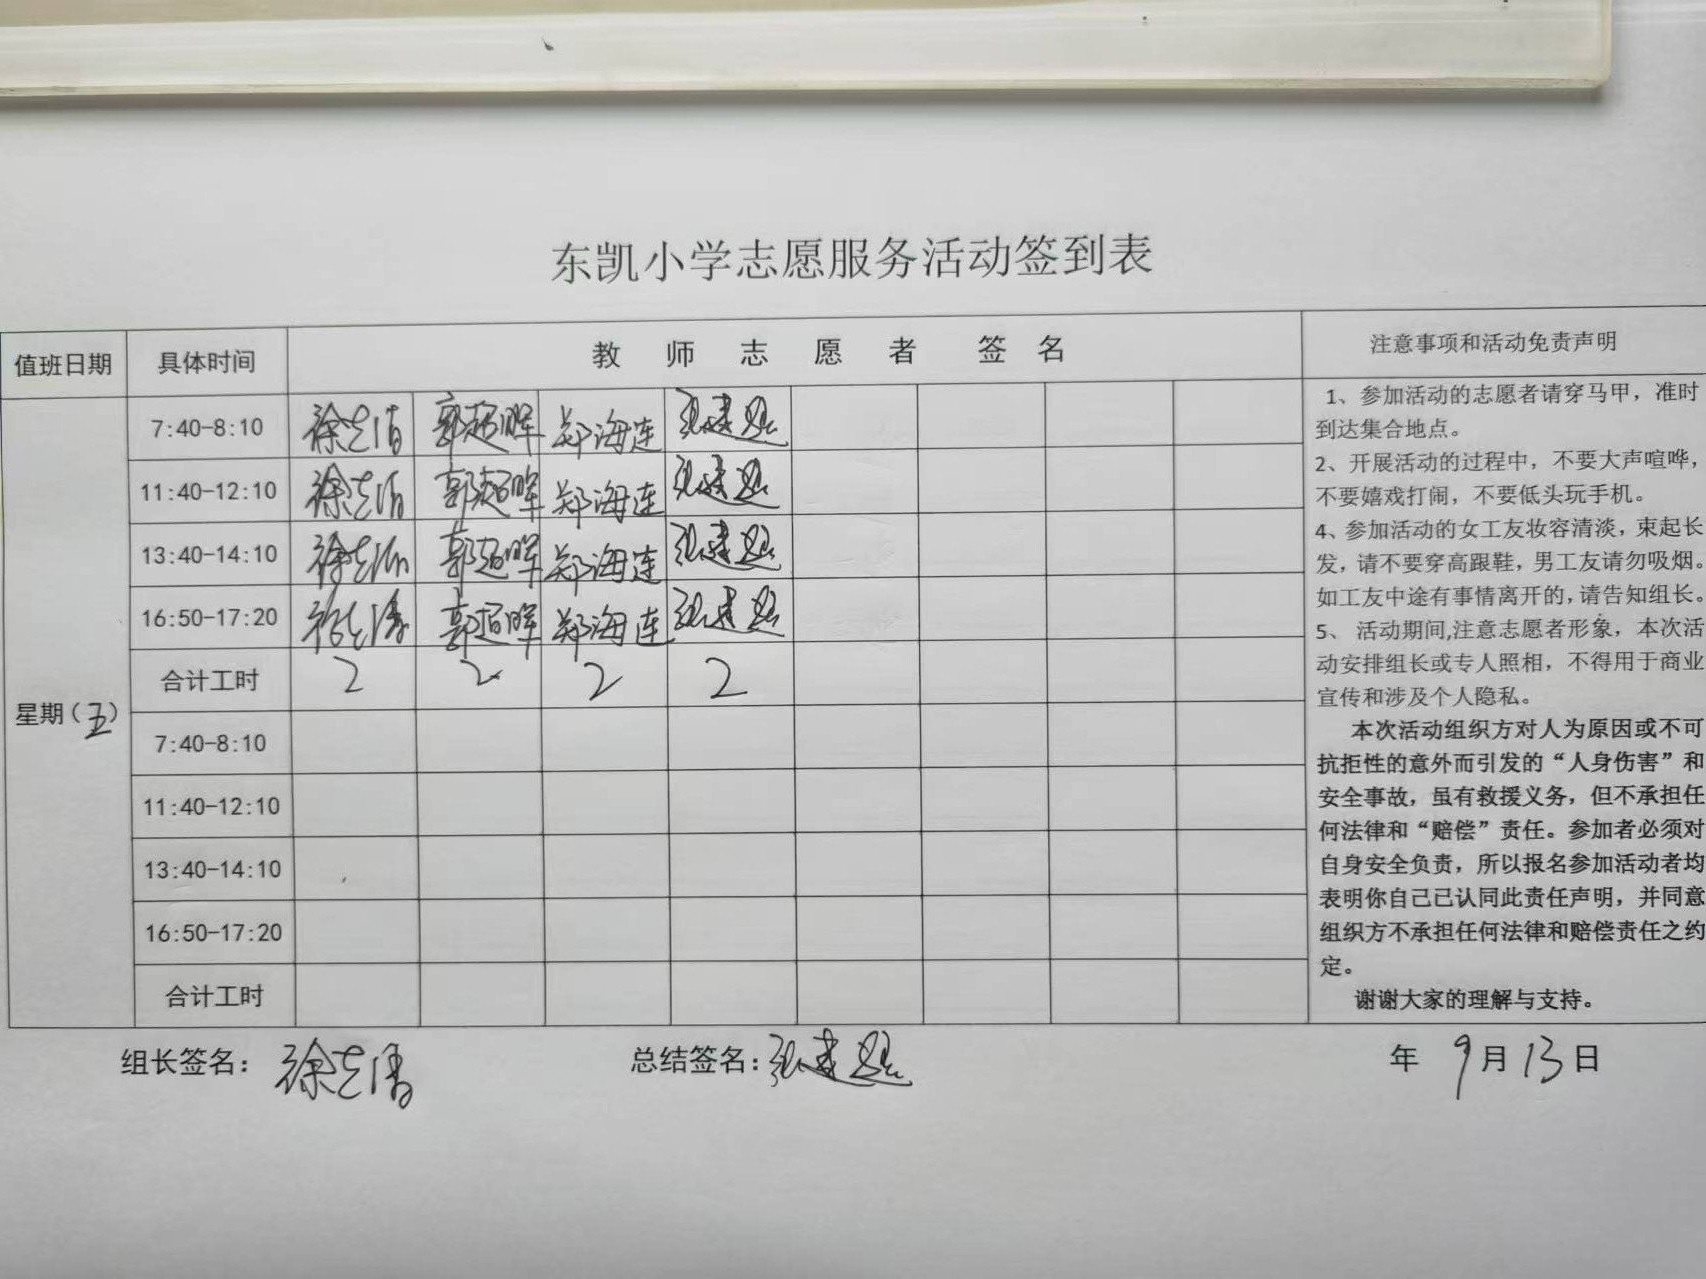 东凯小学志愿服务活动签到表
值班日期 具体时间 教师志愿者 签名 注意事项和活动免责声明
7:40-8:10 郭超晖 郑海连
11:40-12:10 郭超晖 郑海连
13:40-14:10 郭超晖 郑海连
16:50-17:20 郭超晖 郑海连
合计工时 2 2 2 2
星期(五)
7:40-8:10
11:40-12:10
13:40-14:10
16:50-17:20
合计工时
1、参加活动的志愿者请穿马甲，准时
到达集合地点。
2、开展活动的过程中，不要大声喧哗，
不要嬉戏打闹，不要低头玩手机。
4、参加活动的女工友妆容清淡，束起长
发，请不要穿高跟鞋，男工友请勿吸烟。
如工友中途有事情离开的，请告知组长。
5、 活动期间,注意志愿者形象，本次活
动安排组长或专人照相，不得用于商业
宣传和涉及个人隐私。
本次活动组织方对人为原因或不可
抗拒性的意外而引发的“人身伤害”和
安全事故，虽有救援义务，但不承担任
何法律和“赔偿”责任。参加者必须对
自身安全负责，所以报名参加活动者均
表明你自己已认同此责任声明，并同意
组织方不承担任何法律和赔偿责任之约
定。
谢谢大家的理解与支持。
组长签名： 总结签名： 年 9月13日